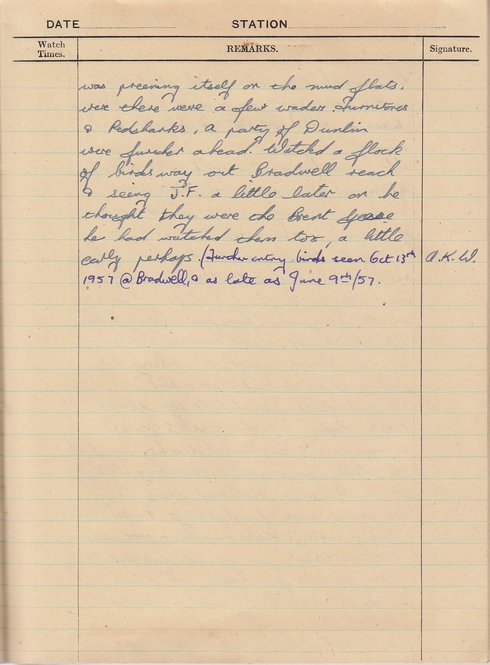 DATE STATION
Watch Times. REMARKS. Signature.
was preening itself on the mud flats.
were there were a few waders. Turnstones
& Redshanks, a party of Dunlin
were further ahead. Watched a flock
of birds way out Bradwell reach
& seeing J.F. a little later on he
thought they were the Brent geese
he had watched them too, a little
early perhaps. (Further entry birds seen Oct 13th A.K.W.
1957 @ Bradwell, & as late as June 9th/57.